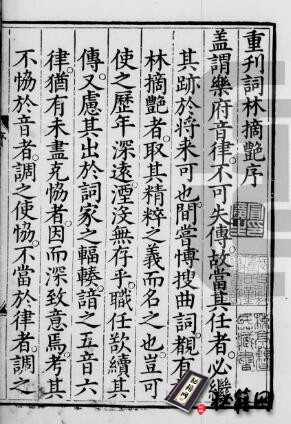 重刊詞林摘艷序
盖謂樂府音律不可失傳故當其任者必繼
其跡於将来可也間嘗博搜曲詞覩有
林摘艷者取其精粹之義而名之也豈可
使之歷年深遠湮沒無存乎職任欲續其
傳又慮其出於詞家之輻輳諳之五音六
律猶有未盡克恊者因而深致意焉考其
不恊於音者調之使恊不當於律者調之